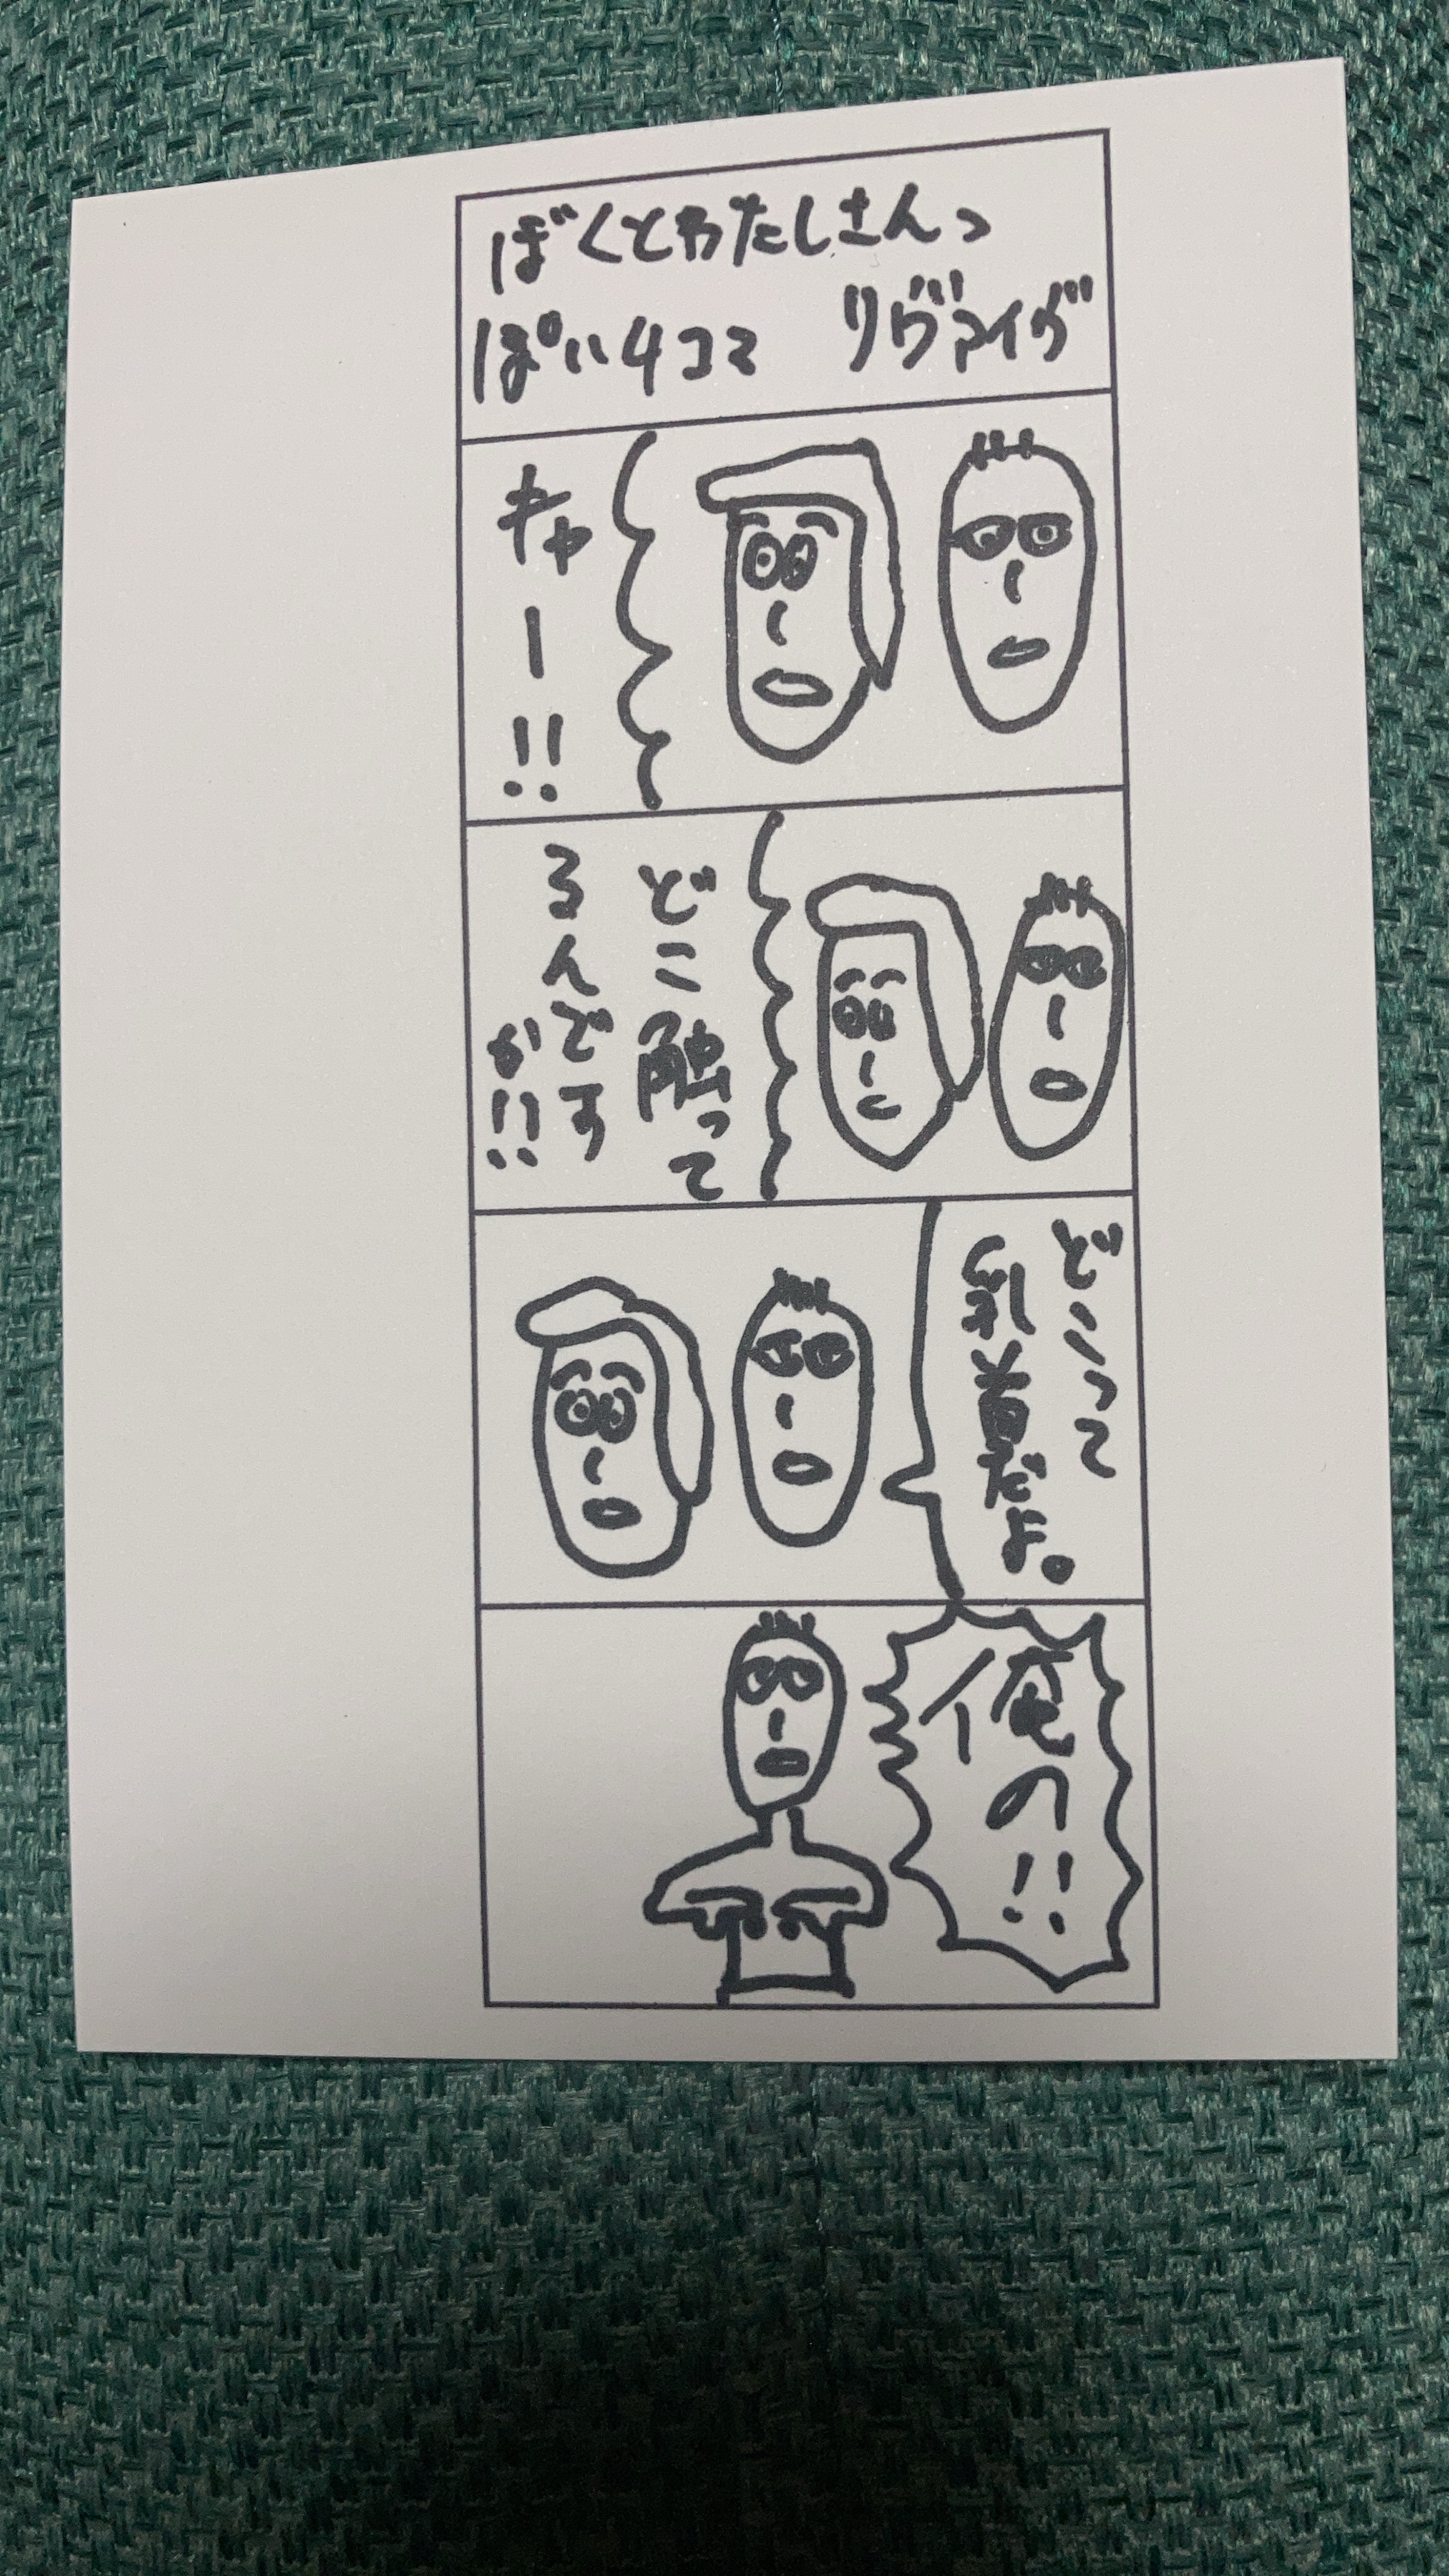 ぼくとわたしさんっ
ぽい4コマ リヴァイヴ
キャー!!
どこ触って
るんです
か!!
どこって
乳首だよ。
俺の!!